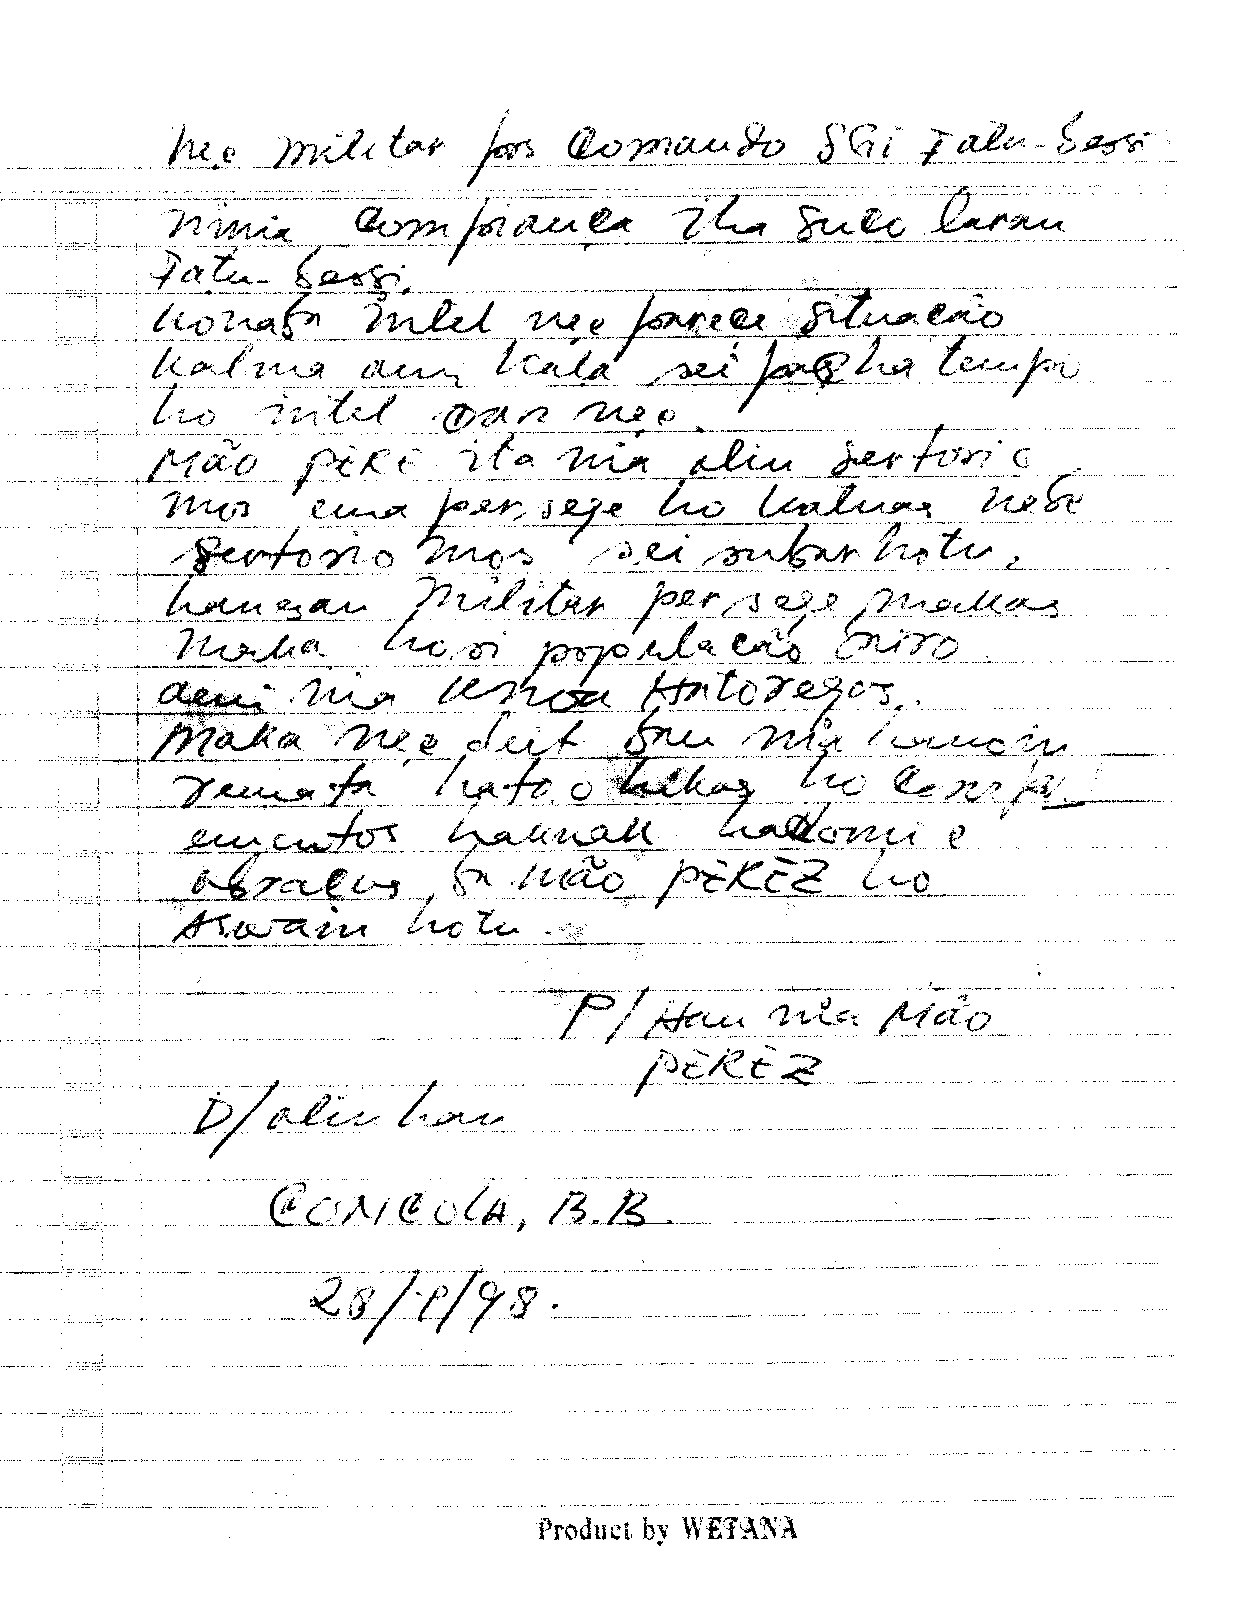 nee militar pos Comando SGI Fatu-Bessi
ninia comfiança iha suco laran
Fatu-Bessi.
Konaba intel nee parece situação
kalma ami kala sei ha tempo
ho intel oan nee.
MÃO PÈRE ita nia alin Sertorio
mos ema persege ho kaluas nebe
Sertorio mos sei subar hotu,
hanesan militar persege makas
maka hosi população
ami nia Hatoregas.
Maka nee deit bau nia hanoin
remata hato'o ho Comprim
ementos haknak hadomi e
abraços, ba mão PÈRÈZ ho
Aswain hotu.
P/ Hau nia MÃO
PÈRÈZ
D/ alin hau
CONCOLA, B.B.
28/ /98.
Product by WETANA